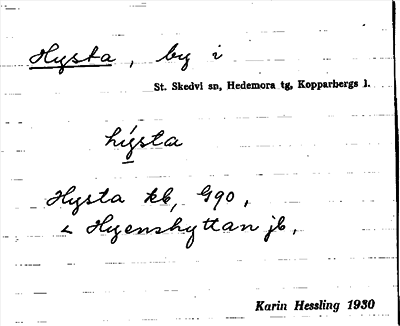 Hysta, by i
St. Skedvi sn, Hedemora tg, Kopparbergs l.
hýsta
Hysta kb, G90,
< Hyenshyttan jb,
Karin Hessling 1930